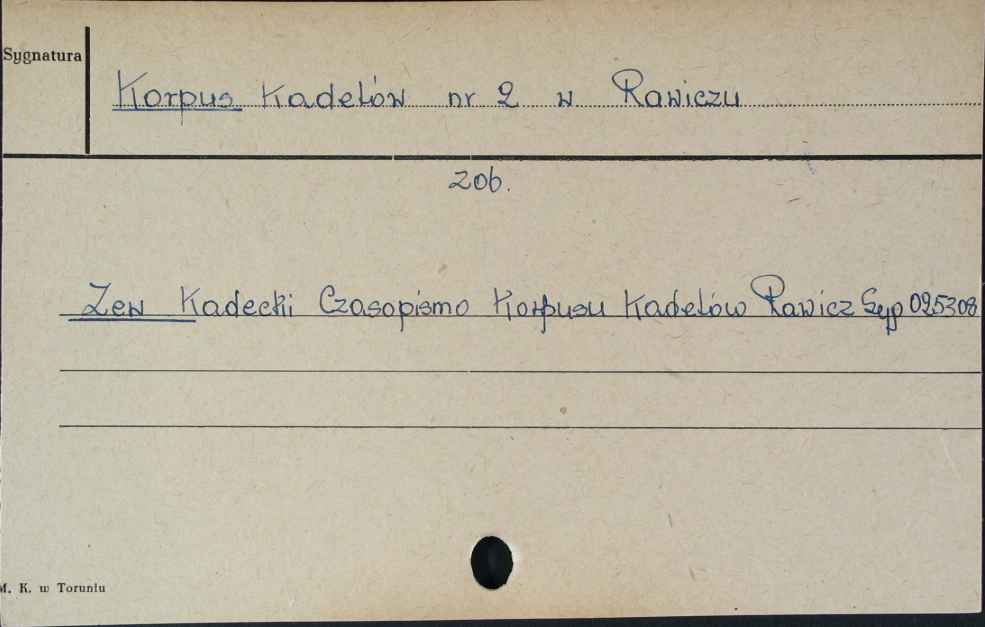 Sygnatura
Korpus Kadetów nr 2 w Rawiczu
zob.
Zew Kadecki Czasopismo Korpusu Kadetów Rawicz Syg 025308
M. K. w Toruniu